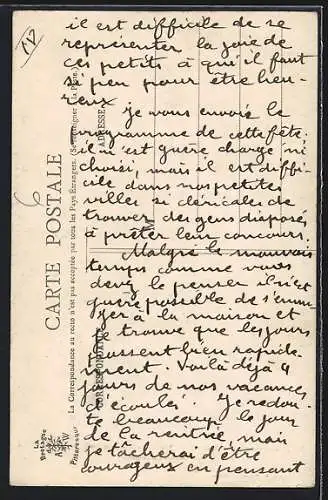 il est difficile de se
représenter la joie de
ces petits à qui il faut
si peu pour être heu-
reux
je vous envoie le
programme de cette fête.
il n'est guère chargé ni
choisi, mais il est diffi-
cile dans nos petites
villes si cléricales de
trouver des gens disposés
à prêter leur concours.
Malgré le mauvais
temps comme vous
devez le penser il n'est
guère possible de s'ennu-
yer à la maison et
trouve que les jours
passent bien rapide-
ment. Voilà déjà 4
jours de nos vacances
écoulés. Je redou-
te beaucoup le jour
de la rentrée, mais
je tâcherai d'être
courageux en pensant
CARTE POSTALE
La Correspondance au recto n'est pas acceptée par tous les Pays Étrangers. (Se renseigner à la Poste.)
CORRESPONDANCE
ADRESSE
La
Bretagne
Pittoresque